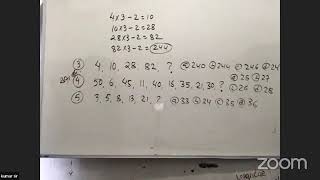 4×3-2=10
10×3-2=28
28×3-2=82
82×3-2=244
③ 4, 10, 28, 82, ? ⓐ 240 ⓑ 244 ⓒ 246 ⓓ 24
④ 50, 6, 45, 11, 40, 16, 35, 21, 30, ? ⓐ 25 ⓑ 27 ⓒ 26 ⓓ 28
⑤ 3, 5, 8, 13, 21, ? ⓐ 33 ⓑ 24 ⓒ 35 ⓓ 36
kumar sir
zoom